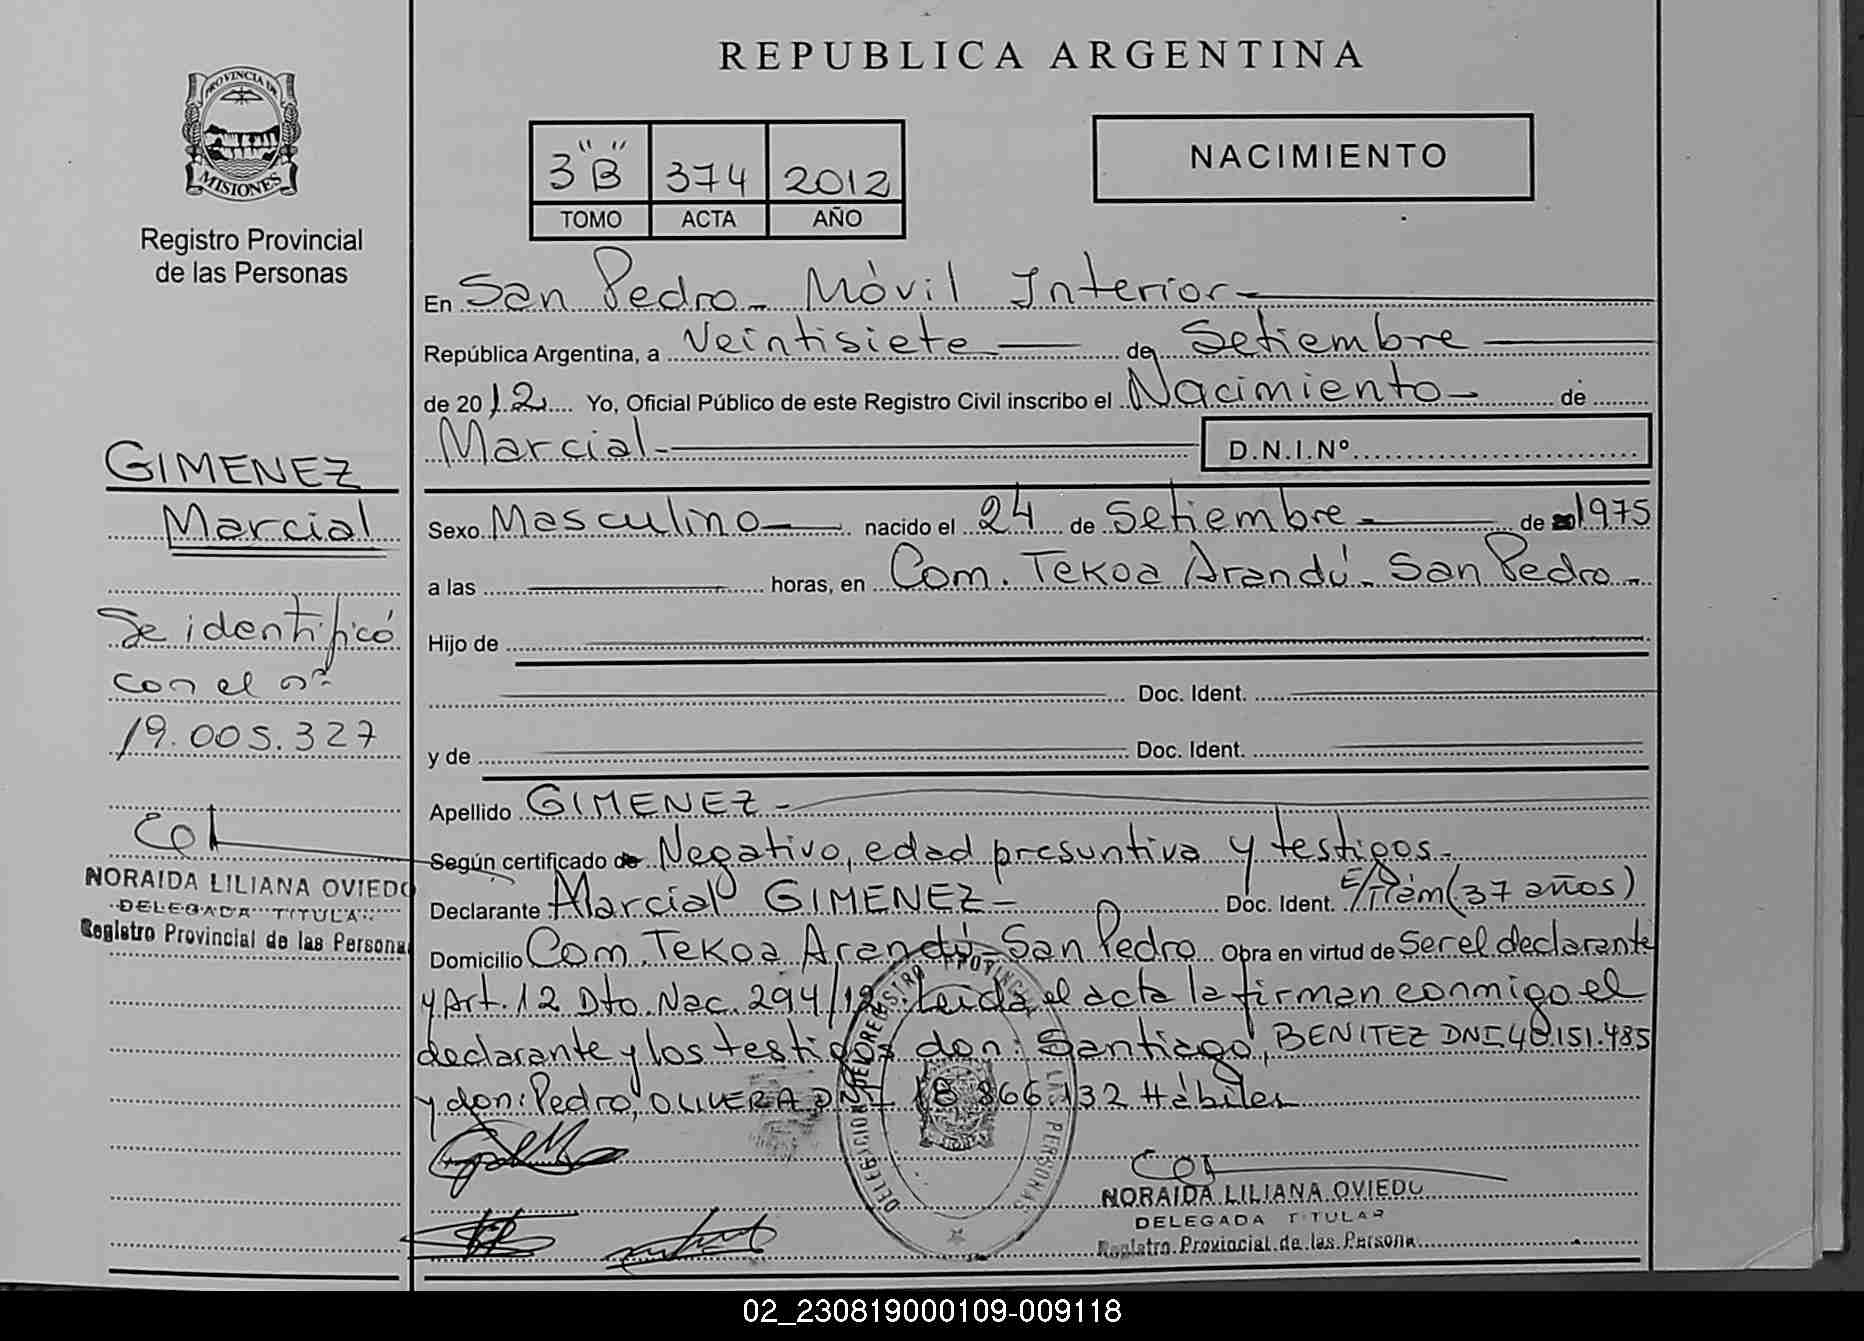 REPUBLICA ARGENTINA
PROVINCIA DE
MISIONES
Registro Provincial
de las Personas
3 "B" 374 2012
TOMO ACTA AÑO
NACIMIENTO
En San Pedro - Móvil Interior
República Argentina, a Veintisiete de Setiembre
de 2012 Yo, Oficial Público de este Registro Civil inscribo el Nacimiento de
Marcial D.N.I.Nº
GIMENEZ
Marcial
Se identificó
con el nº
19.005.327
NORAIDA LILIANA OVIEDO
DELEGADA TITULAR
Registro Provincial de las Persona
Sexo Masculino nacido el 24 de Setiembre de 1975
a las horas, en Com. Tekoa Arandú - San Pedro
Hijo de
Doc. Ident.
y de Doc. Ident.
Apellido GIMENEZ
Según certificado de Negativo, edad presuntiva y testigos
Declarante Marcial GIMENEZ Doc. Ident. E/Trám (37 años)
Domicilio Com. Tekoa Arandú - San Pedro Obra en virtud de Ser el declarante
y Art. 12 Dto. Nac. 294/12. Leída el acta la firman conmigo el
declarante y los testigos don: Santiago, BENITEZ DNI 40.151.485
y don: Pedro, OLIVERA DNI 18 866.132 Hábiles
NORAIDA LILIANA OVIEDO
DELEGADA TITULAR
Registro Provincial de las Persona
02_230819000109-009118